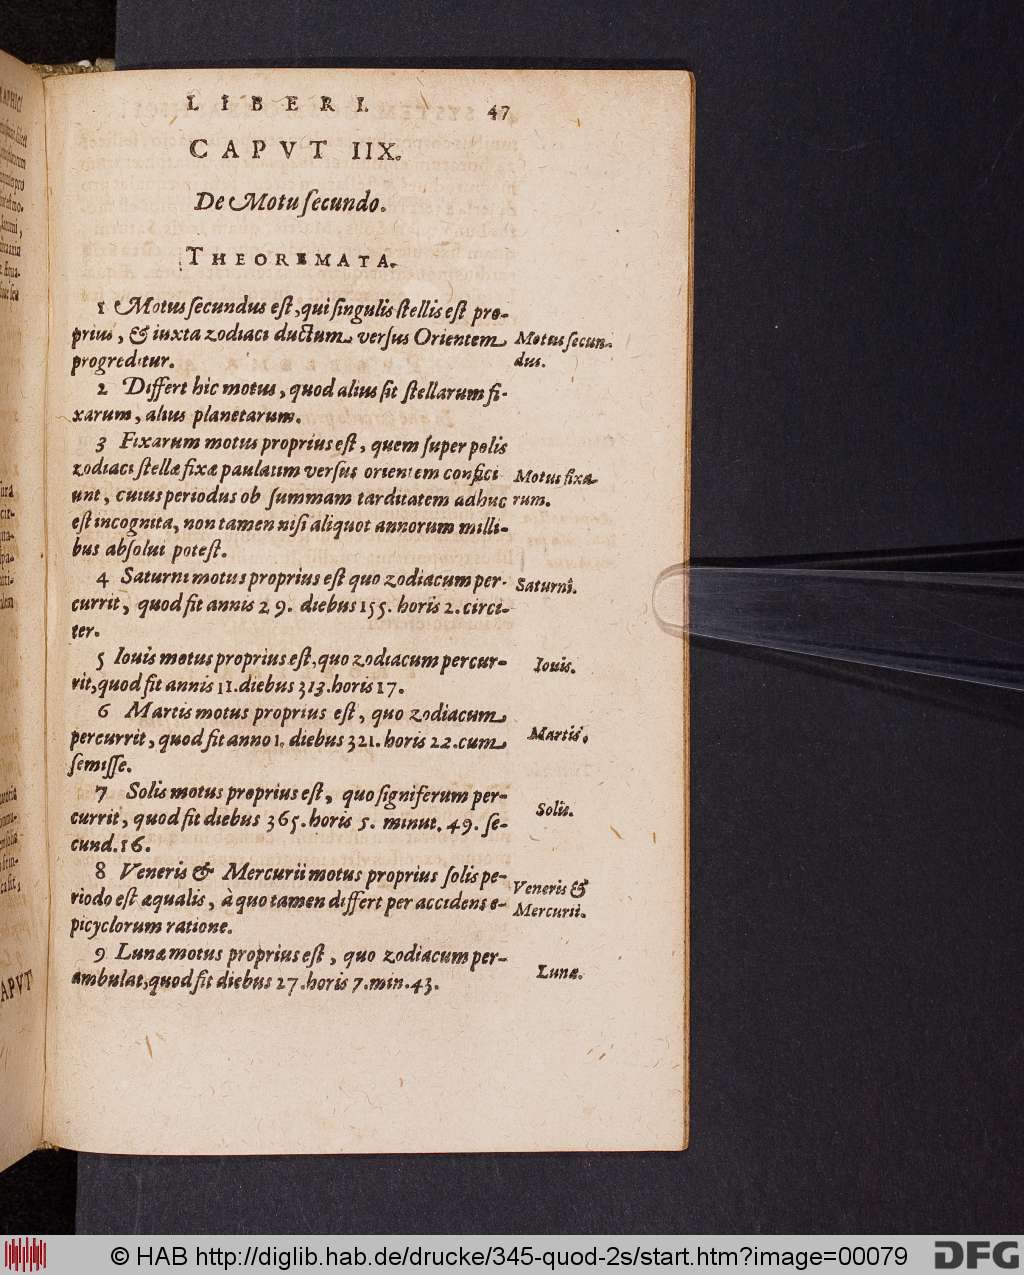 LIBER I. 47
CAPVT IIX.
De Motu secundo.
THEOREMATA.
1 Motus secundus est, qui singulis stellis est pro-
prius, & iuxta zodiaci ductum versus Orientem
progreditur.
Motus secun-
dus.
2 Differt hic motus, quod alius sit stellarum fi-
xarum, alius planetarum.
3 Fixarum motus proprius est, quem super polis
zodiaci stellæ fixæ paulatim versus orientem confici
unt, cuius periodus ob summam tarditatem adhuc
est incognita, non tamen nisi aliquot annorum milli-
bus absolui potest.
Motus fixa-
rum.
4 Saturni motus proprius est quo zodiacum per-
currit, quod fit annis 29. diebus 155. horis 2. circi-
ter.
Saturni.
5 Iouis motus proprius est, quo zodiacum percur-
rit, quod fit annis 11. diebus 313. horis 17.
Iouis.
6 Martis motus proprius est, quo zodiacum
percurrit, quod fit anno 1. diebus 321. horis 22. cum
semisse.
Martis.
7 Solis motus proprius est, quo signiferum per-
currit, quod fit diebus 365. horis 5. minut. 49. se-
cund. 16.
Solis.
8 Veneris & Mercurii motus proprius solis pe-
riodo est æqualis, à quo tamen differt per accidens e-
picyclorum ratione.
Veneris &
Mercurii.
9 Lunæ motus proprius est, quo zodiacum per-
ambulat, quod fit diebus 27. horis 7. min. 43.
Lunæ.
APVT
© HAB http://diglib.hab.de/drucke/345-quod-2s/start.htm?image=00079
DFG